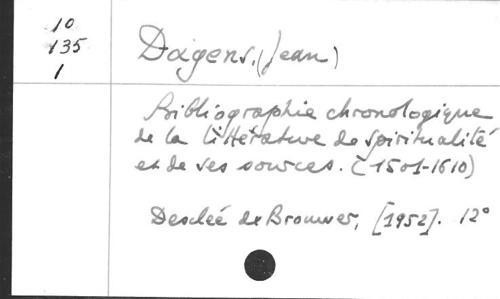 10
135
1
Dagens, (Jean)
Bibliographie chronologique
de la littérature de spiritualité
et de ses sources. (1501-1610)
Desclée de Brouwer, [1952]. 12°